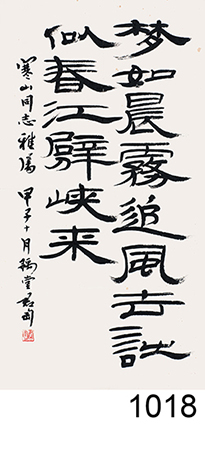 梦如晨雾追风去訩
似春江劈峡来
寒山同志雅属 甲子十月
1018